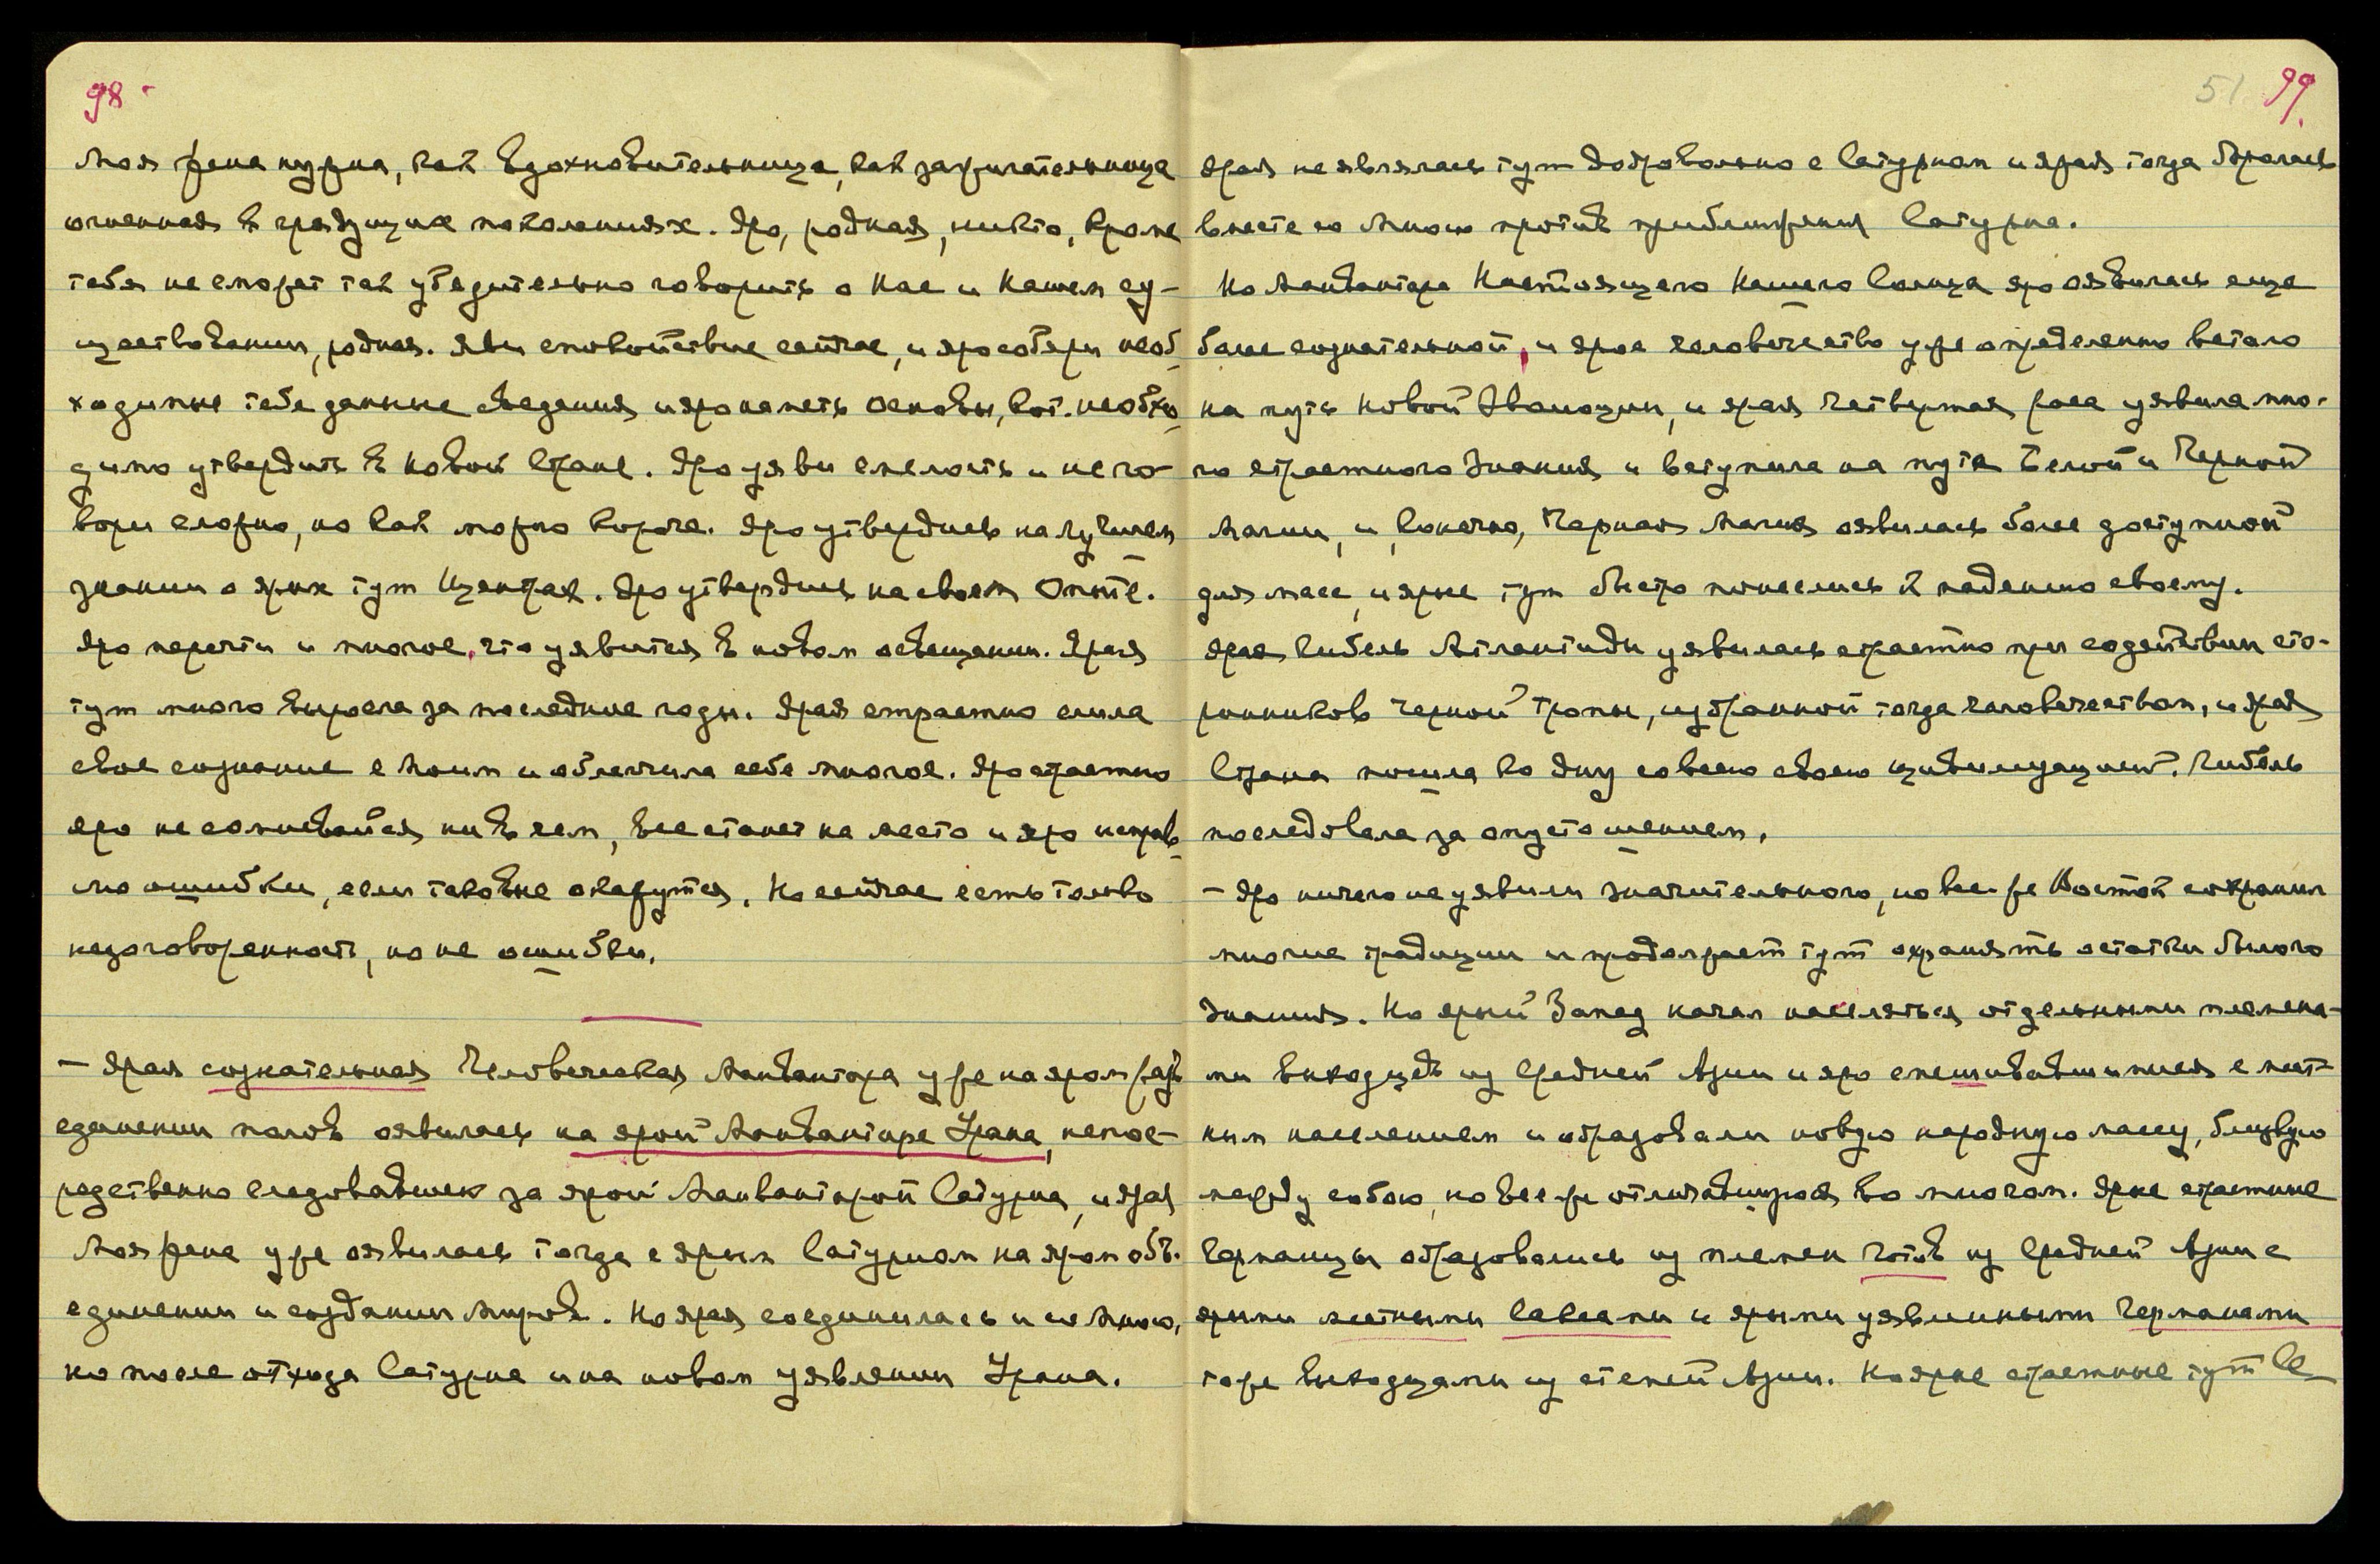 98.
Моя Жена нужна, как Вдохновительница, как зажигательница
огненная в грядущих поколениях. Яро, родная, никто, кроме
тебя не сможет так убедительно говорить о Нас и Нашем су-
ществовании, родная. Яви спокойствие сейчас, и яро собери необ-
ходимые тебе данные сведения и яро наметь основы, кот. необхо-
димо утвердить в Новой Стране. Яро уяви смелость и не го-
вори сложно, но как можно короче. Яро утвердись на лучшем
знании о ярых тут Центрах. Яро утвердись на своем Опыте.
Яро перечти и многое, что уявится в новом освещении. Ярая
тут много выросла за последние годы. Ярая страстно слила
свое сознание с Моим и облегчила себе многое. Яро страстно
яро не сомневайся ни в чем, все станет на место и яро исправ-
лю ошибки, если таковые окажутся. Но сейчас есть только
недоговоренность, но не ошибки.
— Ярая сознательная Человеческая Манвантара уже на яром разъ-
единении полов оявилась на ярой Манвантаре Урана, непос-
редственно следовавшей за ярой Манвантарой Сатурна, и ярая
Моя Жена уже оявилась тогда с ярым Сатурном на яром объ-
единении и создании Миров. Но ярая соединилась и со Мною,
но после отхода Сатурна и на новом уявлении Урана.
51 99.
Ярая не являлась тут добровольно с Сатурном и ярая тогда боролась
вместе со Мною против приближения Сатурна.
Но Манвантара Настоящего Нашего Солнца яро оявилась еще
более сознательной, и ярое человечество уже определенно встало
на путь Новой Эволюции, и ярая Четвертая раса уявила мно-
го страстного Знания и вступила на путь Белой и Черной
Магии, и, конечно, Черная Магия оявилась более доступной
для масс, и ярые тут быстро понеслись к падению своему.
Ярая Гибель Атлантиды уявилась страстно при содействии сто-
ронников черной тропы, избранной тогда человечеством, и ярая
Страна пошла ко дну со всею своею цивилизацией. Гибель
последовала за опустошением.
— Яро ничего не уявили значительного, но все же Восток сохранил
многие традиции и продолжает тут охранять остатки былого
Знания. Но ярый Запад начал населяться отдельными племена-
ми выходцев из Средней Азии и яро смешивавшимися с мест-
ным населением и образовали новую народную массу, близкую
между собою, но все же отличавшуюся во многом. Ярые страстные
Германцы образовались из племен готов из Средней Азии с
ярыми местными саксами и ярыми уявленными Германами
тоже выходцами из степей Азии. Но ярые страстные тут Се-